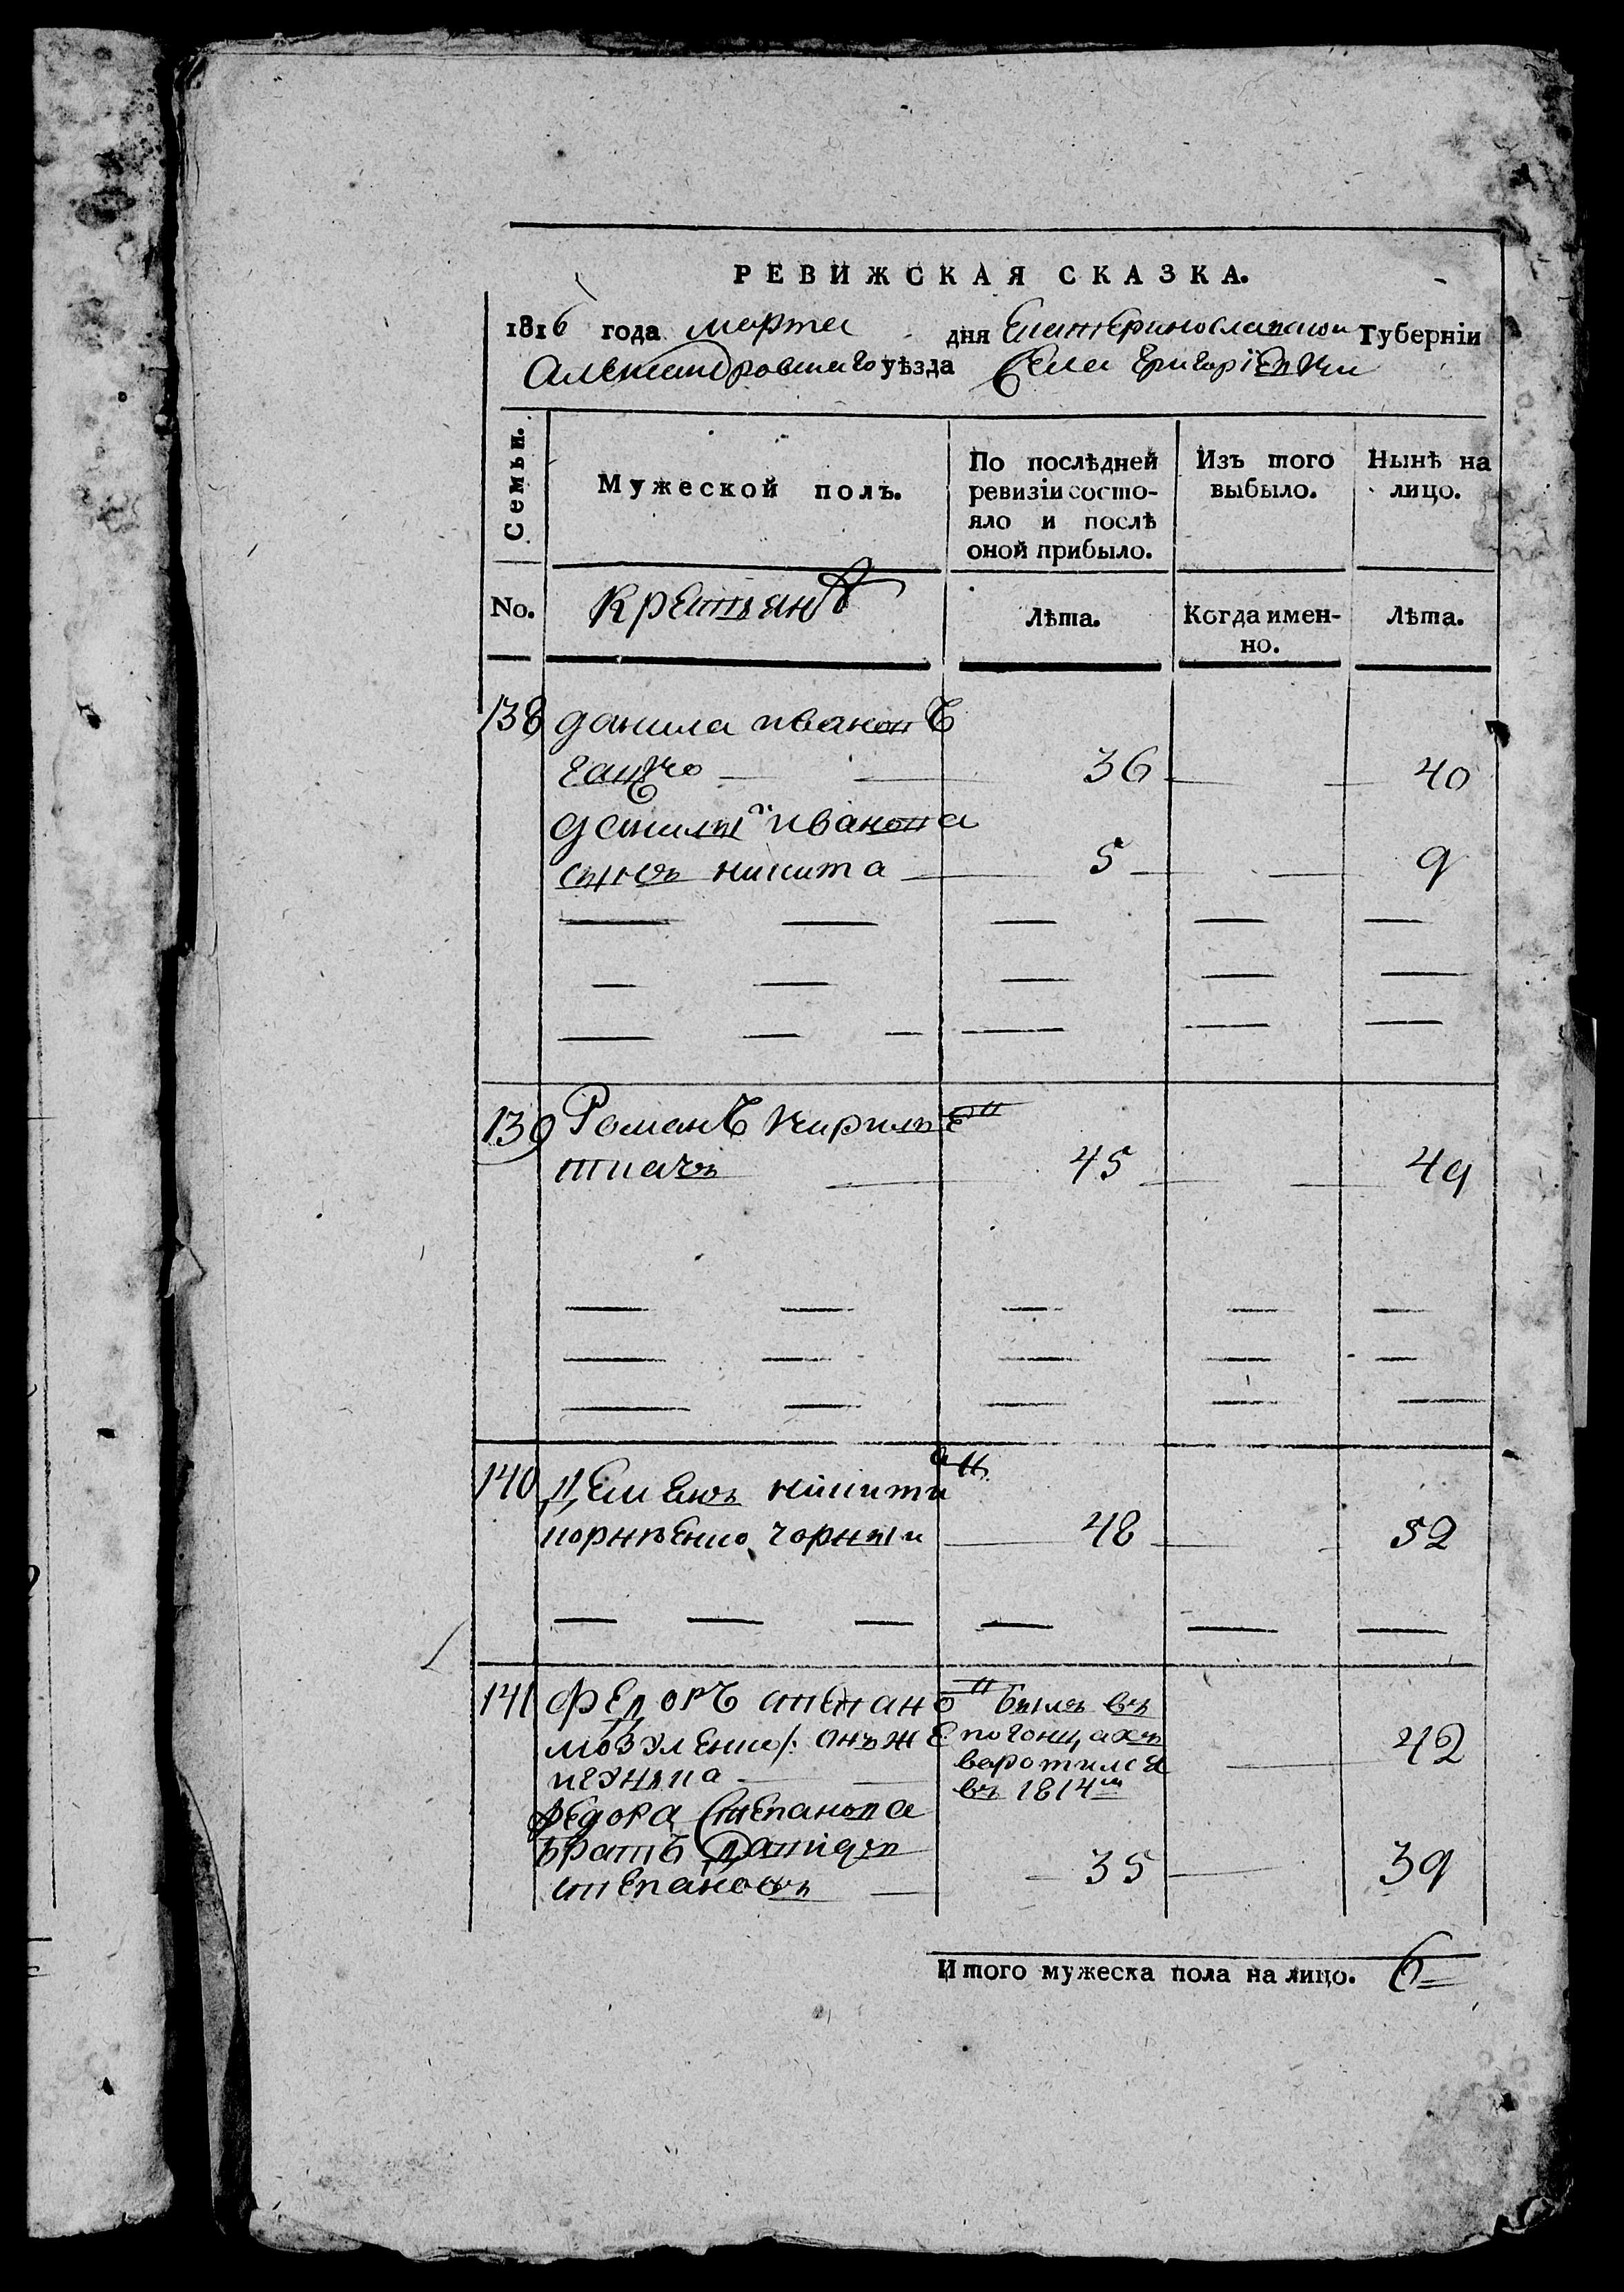 РЕВИЖСКАЯ СКАЗКА.
1816 года марта дня Екатеринославской Губерніи
Александровскаго уѣзда Села Григоріевки
Семьи.
Мужеской полъ.
По послѣдней ревизіи состо-
яло и послѣ
оной прибыло.
Изъ того
выбыло.
Нынѣ на
лицо.
No.
Крестьянъ
Лѣта.
Когда имен-
но.
Лѣта.
138 данила ивановъ
ганжа 36 40
данилы ивановa
сынъ никита 5 9
139 Романъ кирилов
ткачъ 45 49
140 Демьянъ никитин
корнѣенко чорныи 48 52
141 Федоръ степано былъ въ
онъ же погонцахъ 42
варотился
въ 1814м
федора Степанова
братъ Давидъ
степановъ 35 39
Итого мужеска пола на лицо. 6